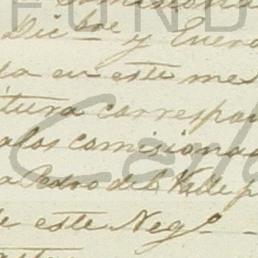 Dic.bre y Enero
da en este me
itura correspo
alos comisionad
a Pedro del Valle p
de este Neg.o